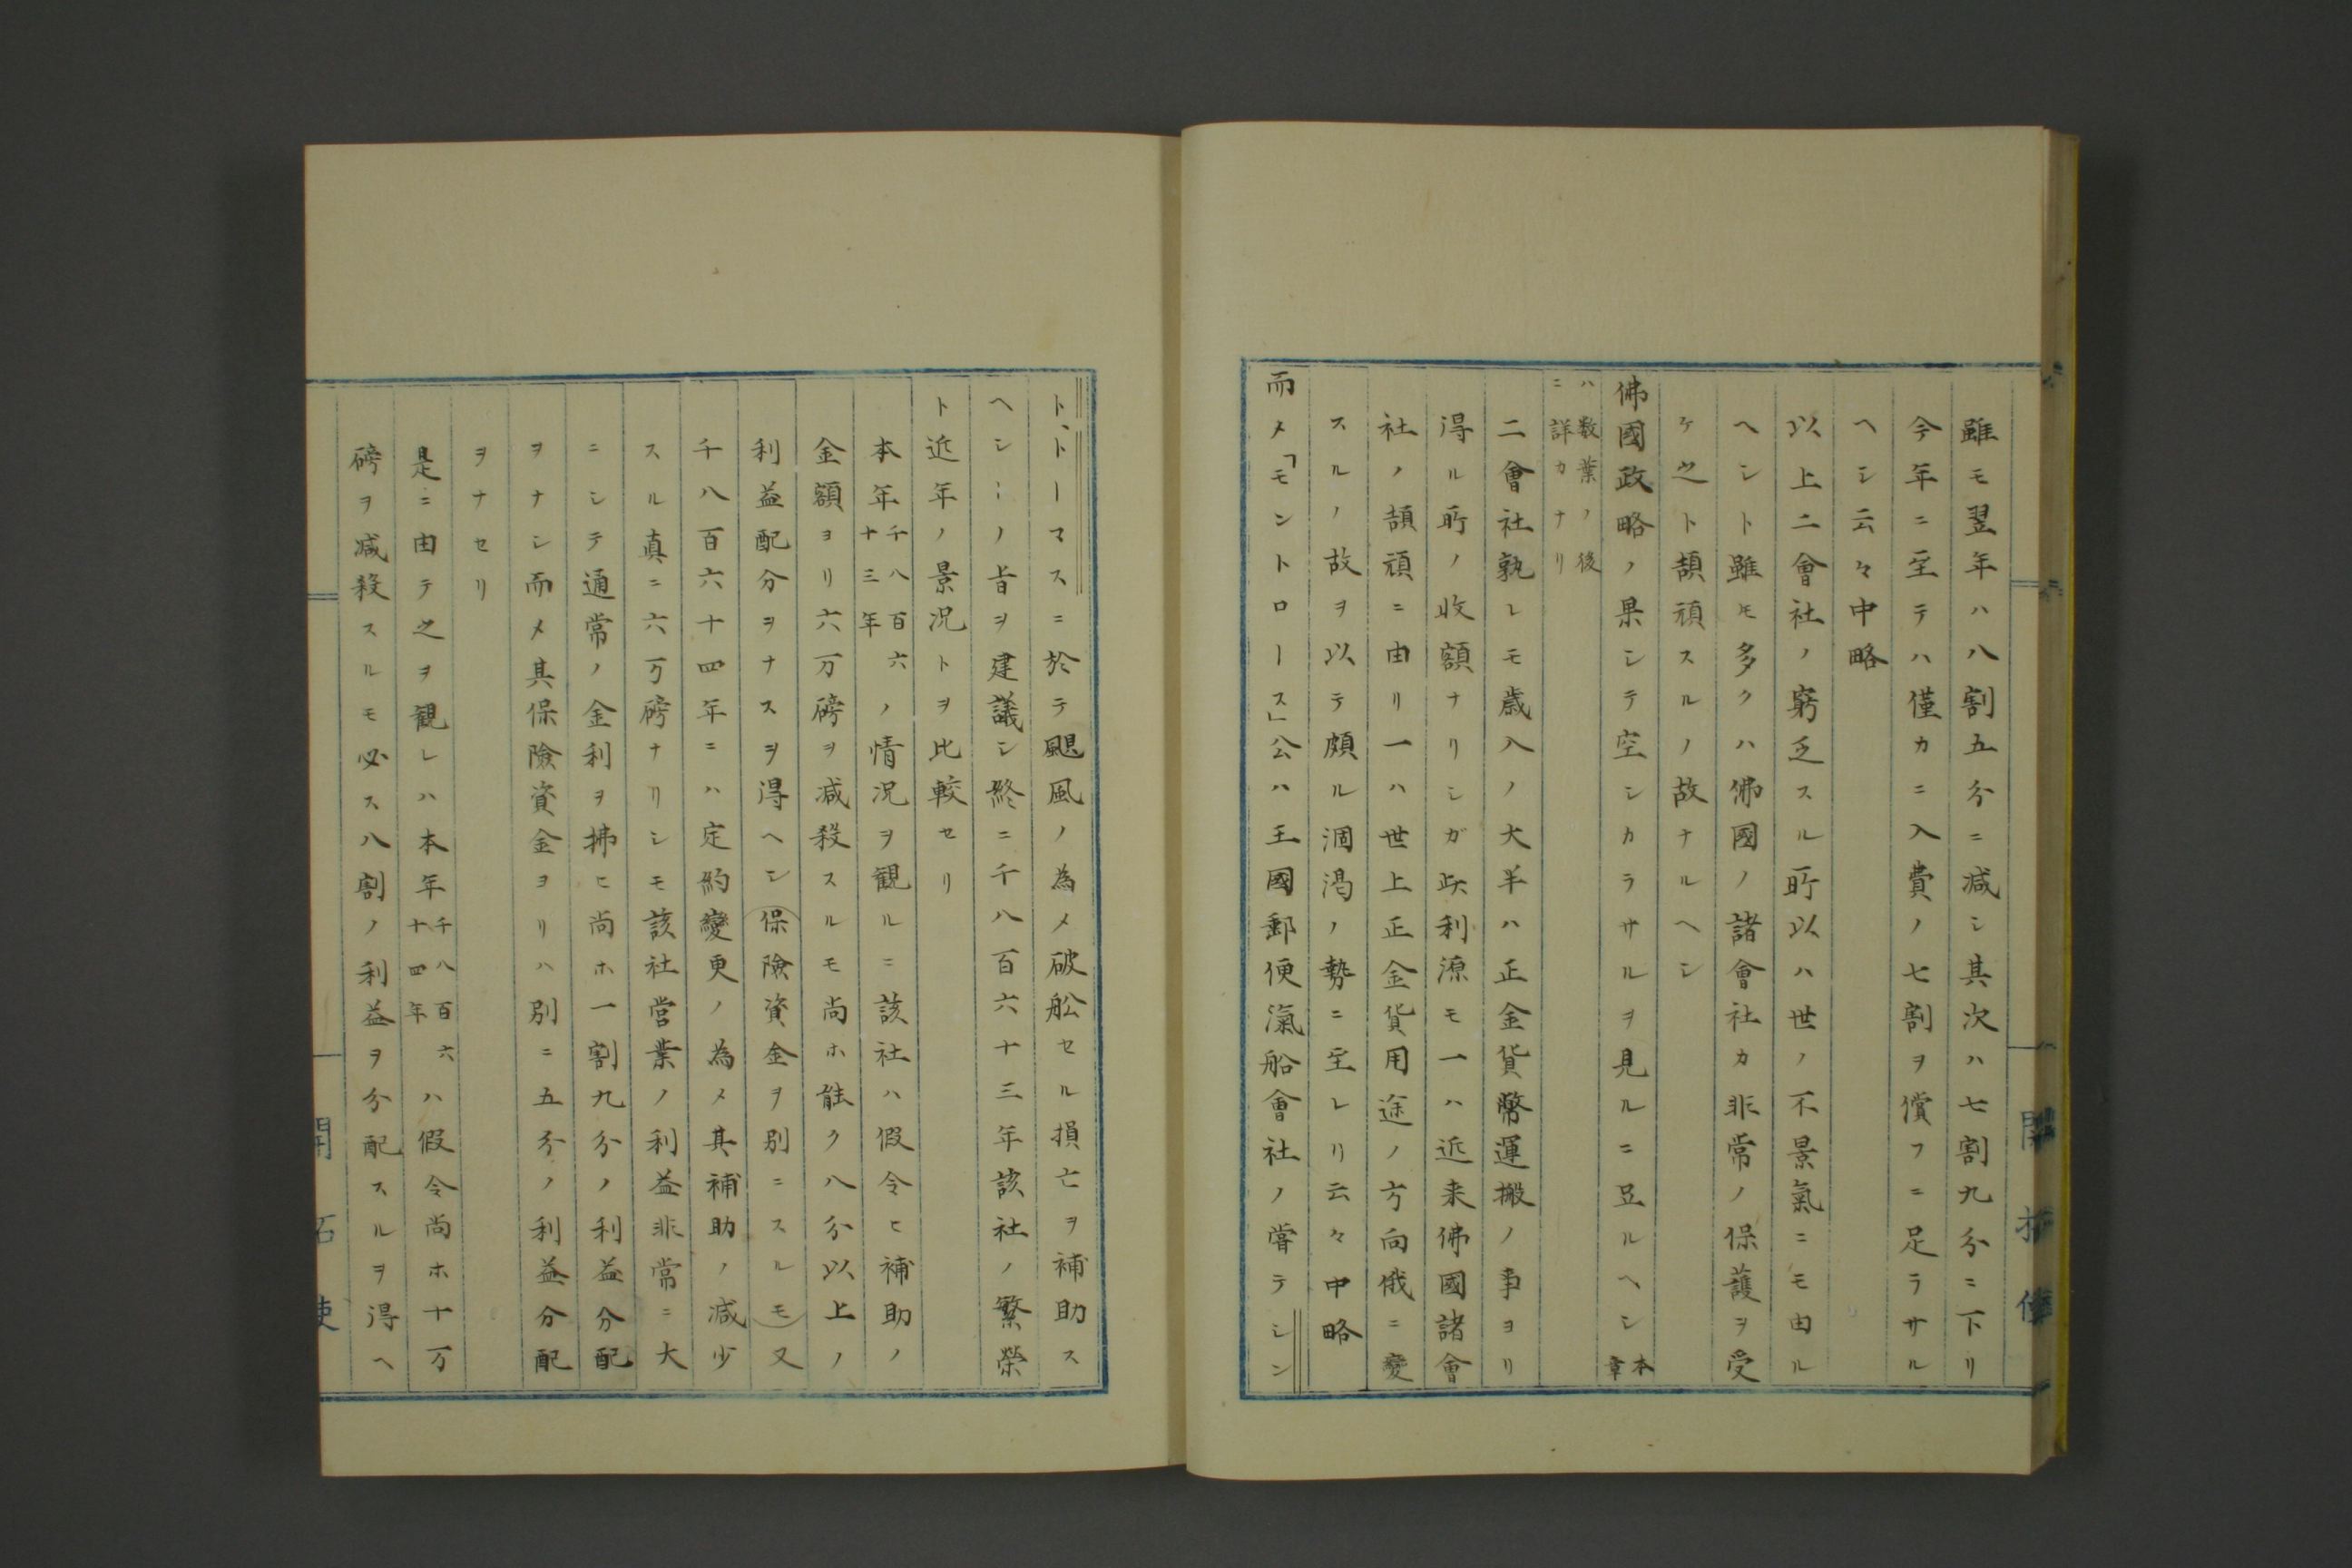 雖モ翌年ハ八割五分ニ減シ其次ハ七割九分ニ下リ
今年ニ至テハ僅カニ入費ノ七割ヲ償フニ足ラサル
ヘシ云々中略
以上二會社ノ窮乏スル所以ハ世ノ不景氣ニモ由ル
ヘシト雖モ多クハ佛國ノ諸會社カ非常ノ保護ヲ受
ケ之ト頡頏スルノ故ナルヘシ
佛國政略ノ果シテ空シカラサルヲ見ルニ足ルヘシ本章
ハ数葉ノ後
ニ詳カナリ
二會社孰レモ歳入ノ大半ハ正金貨幣運搬ノ事ヨリ
得ル所ノ收額ナリシガ此利源モ一ハ近来佛國諸會
社ノ頡頏ニ由リ一ハ世上正金貨用途ノ方向俄ニ變
スルノ故ヲ以テ頗ル涸渇ノ勢ニ至レリ云々中略
而メ「モントローース」公ハ王國郵便滊船會社ノ嘗テシン
ト、トーマスニ於テ颶風ノ為メ破舩セル損亡ヲ補助ス
ヘシ丨ノ旨ヲ建議シ終ニ千八百六十三年該社ノ繁榮
ト近年ノ景況トヲ比較セリ
本年千八百六十三年ノ情況ヲ観ルニ該社ハ假令ヒ補助ノ
金額ヨリ六万磅ヲ減殺スルモ尚ホ能ク八分以上ノ
利益配分ヲナスヲ得ヘシ保險資金ヲ別ニスルモ又
千八百六十四年ニハ定約變更ノ為メ其補助ノ減少
スル真ニ六万磅ナリシモ該社営業ノ利益非常ニ大
ニシテ通常ノ金利ヲ拂ヒ尚ホ一割九分ノ利益分配
ヲナシ而メ其保險資金ヨリハ別ニ五分ノ利益分配
ヲナセリ
是ニ由テ之ヲ観レハ本年千八百六十四年ハ假令尚ホ十万
磅ヲ減殺スルモ必ス八割ノ利益ヲ分配スルヲ得ヘ
開拓使